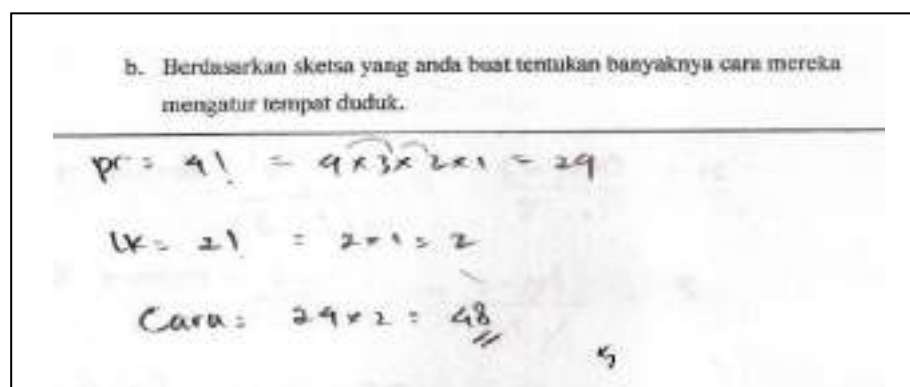 b. Berdasarkan sketsa yang anda buat tentukan banyaknya cara mereka
mengatur tempat duduk.
pr = 4! = 4 x 3 x 2 x 1 = 24
lk = 2! = 2 x 1 = 2
Cara = 24 x 2 = 48
5